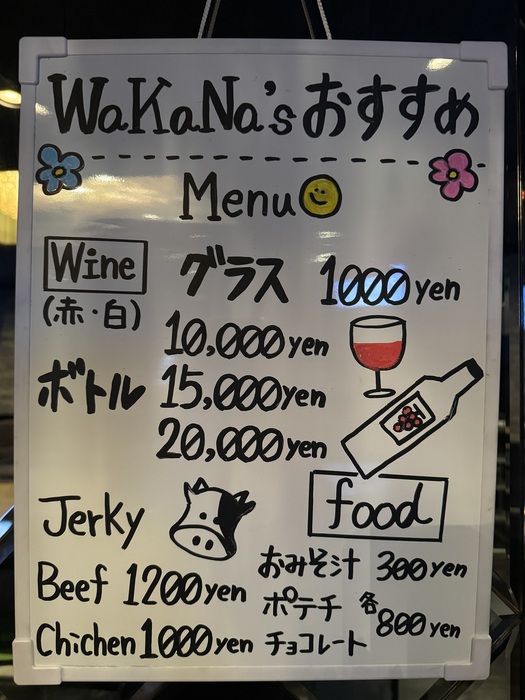 WaKaNa'sおすすめ
Menu
Wine グラス 1000yen
(赤・白)
10,000yen
ボトル 15,000yen
20,000yen
Jerky
Beef 1200yen
Chichen 1000yen
food
おみそ汁 300yen
ポテチ 各800yen
チョコレート